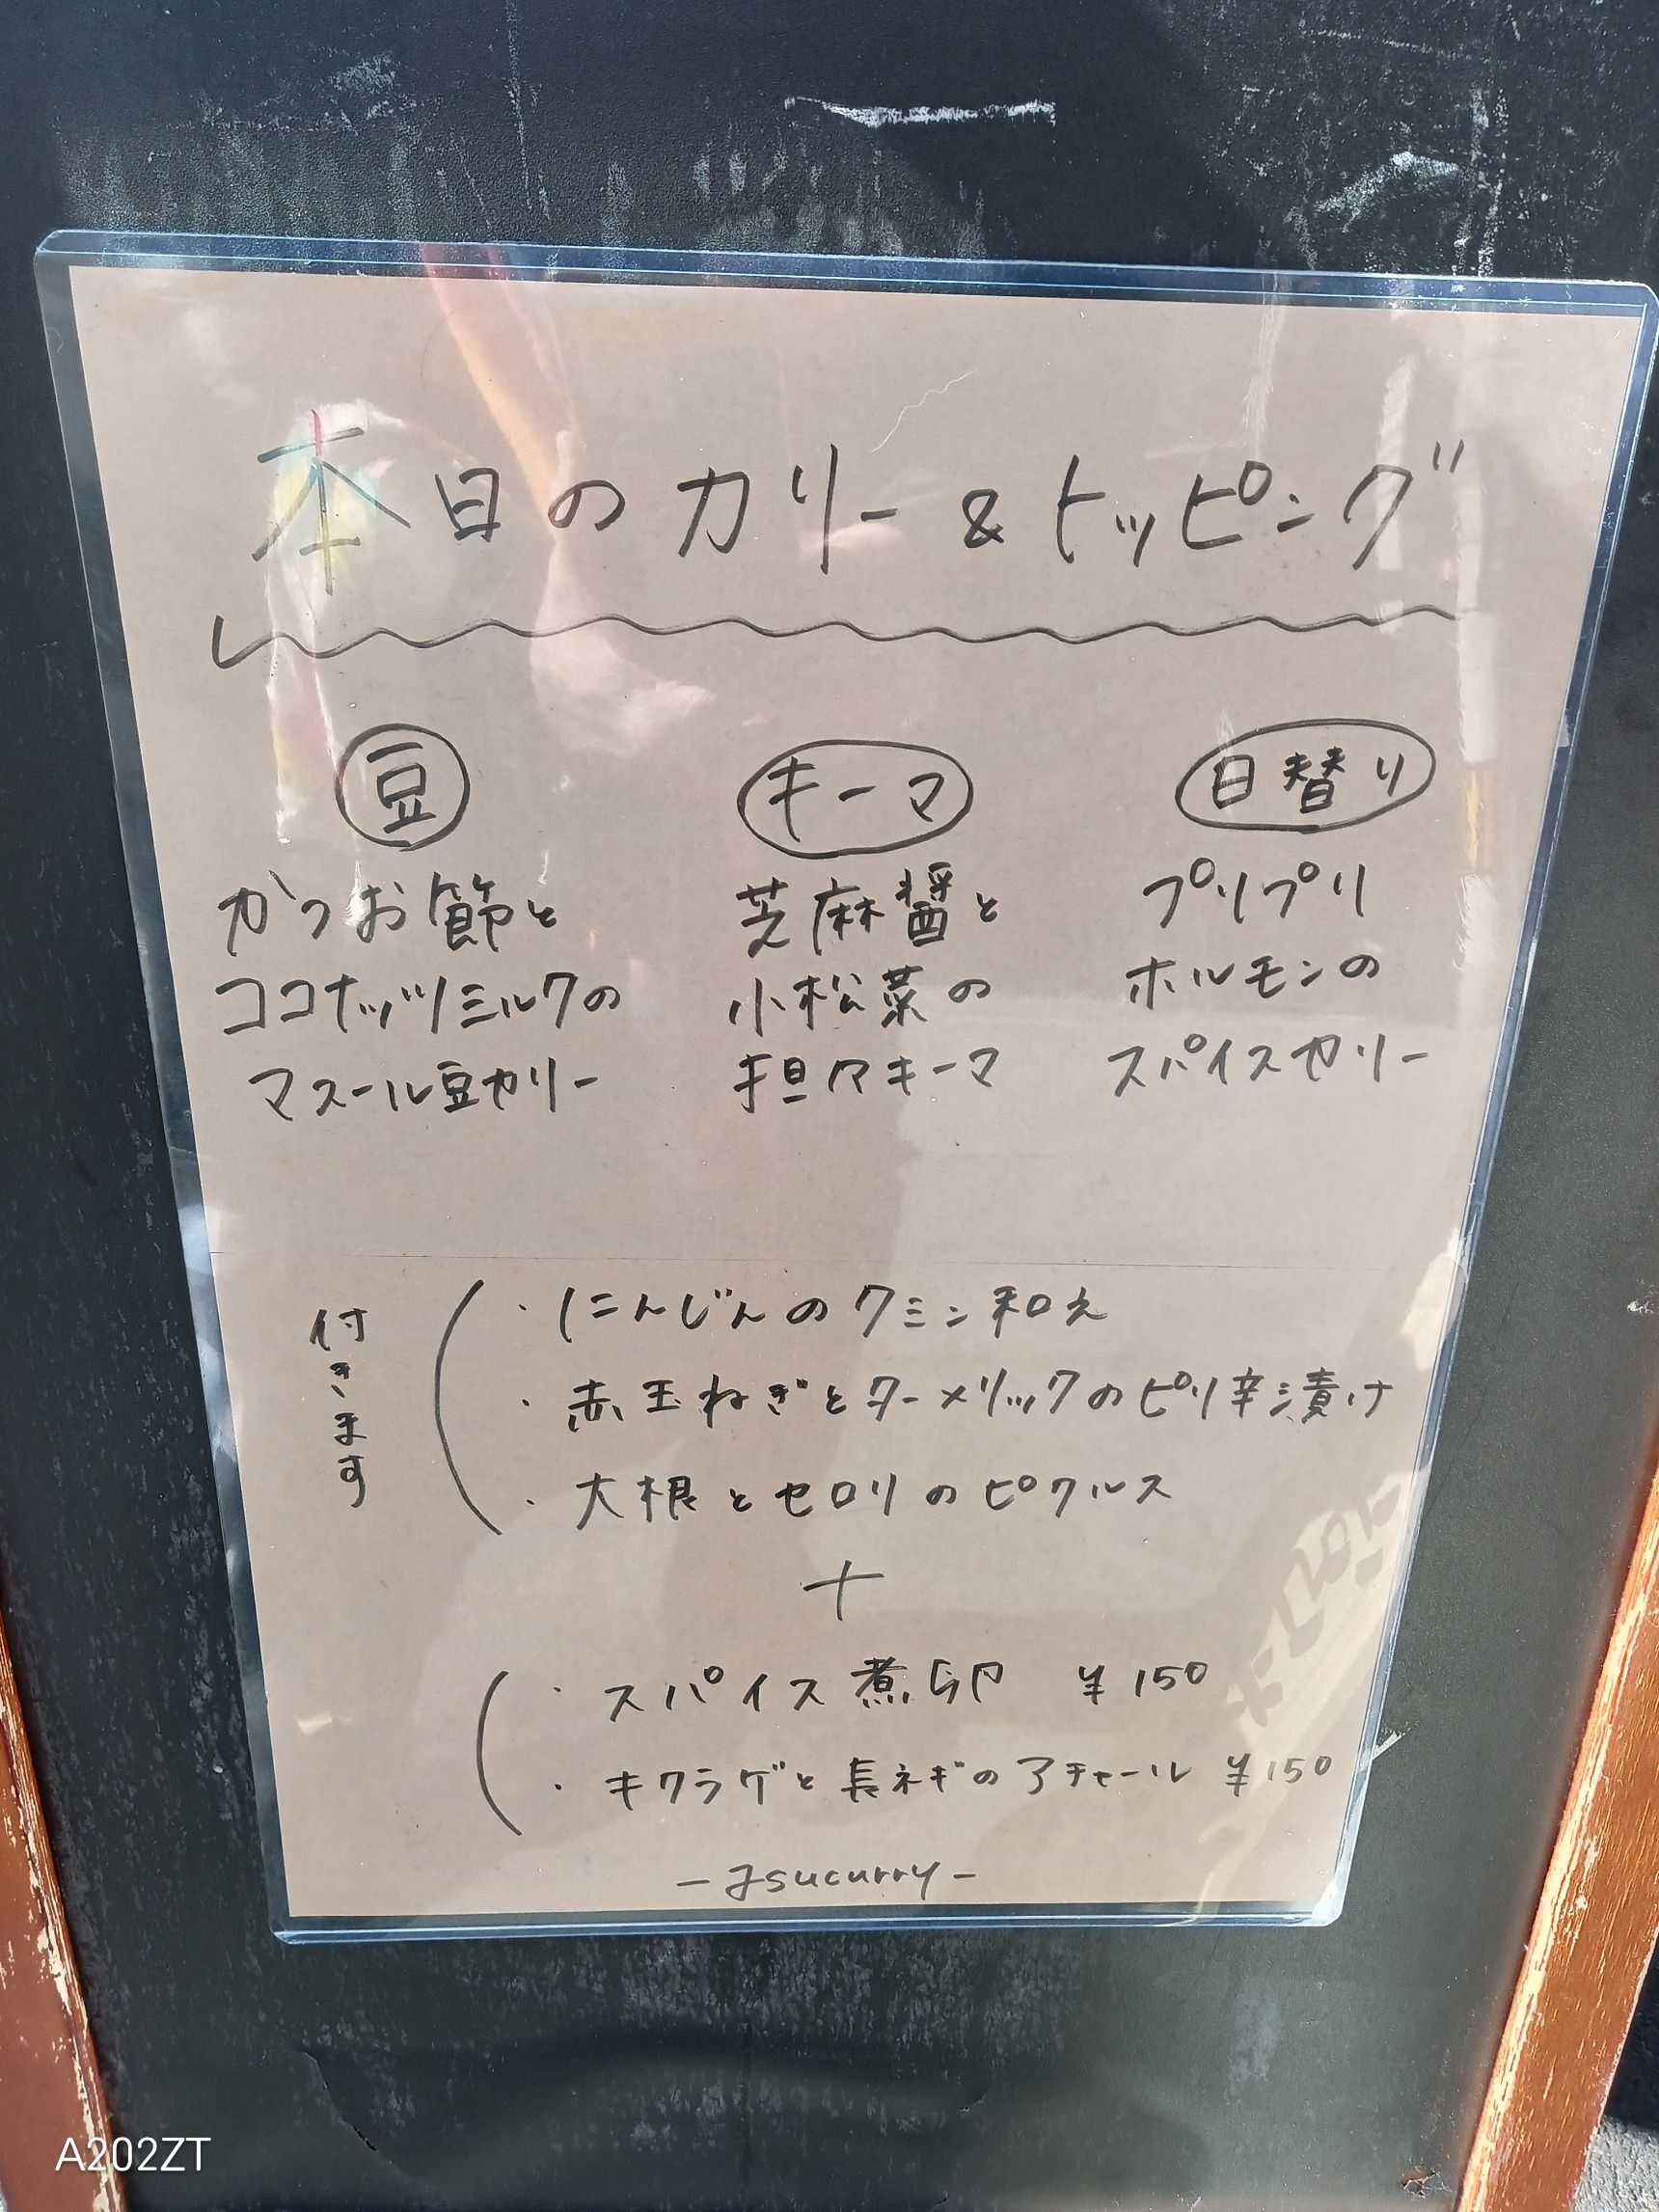 本日のカリー&トッピング
豆
かつお節と
ココナッツミルクの
マスール豆カリー
キーマ
芝麻醤と
小松菜の
担々キーマ
日替り
プリプリ
ホルモンの
スパイスカリー
付きます
・にんじんのクミン和え
・赤玉ねぎとターメリックのピリ辛漬け
・大根とセロリのピクルス
+
・スパイス煮卵 ¥150
・キクラゲと長ネギのアチャール ¥150
A202ZT